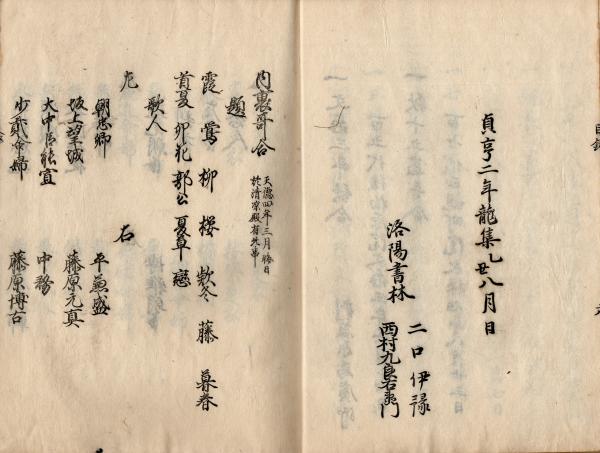 貞亨二年龍集乙丑八月日
洛陽書林
二口伊豫
西村九良右衛門
内裏哥合
天徳四年三月晦日
於清凉殿有此事
題
霞 鶯 柳 櫻 欵冬 藤 暮春
首夏 卯花 郭公 夏草 戀
歌人
左
右
朝忠卿
平兼盛
坂上望城
藤原元真
大中臣能宣
中務
少貳命婦
藤原博古